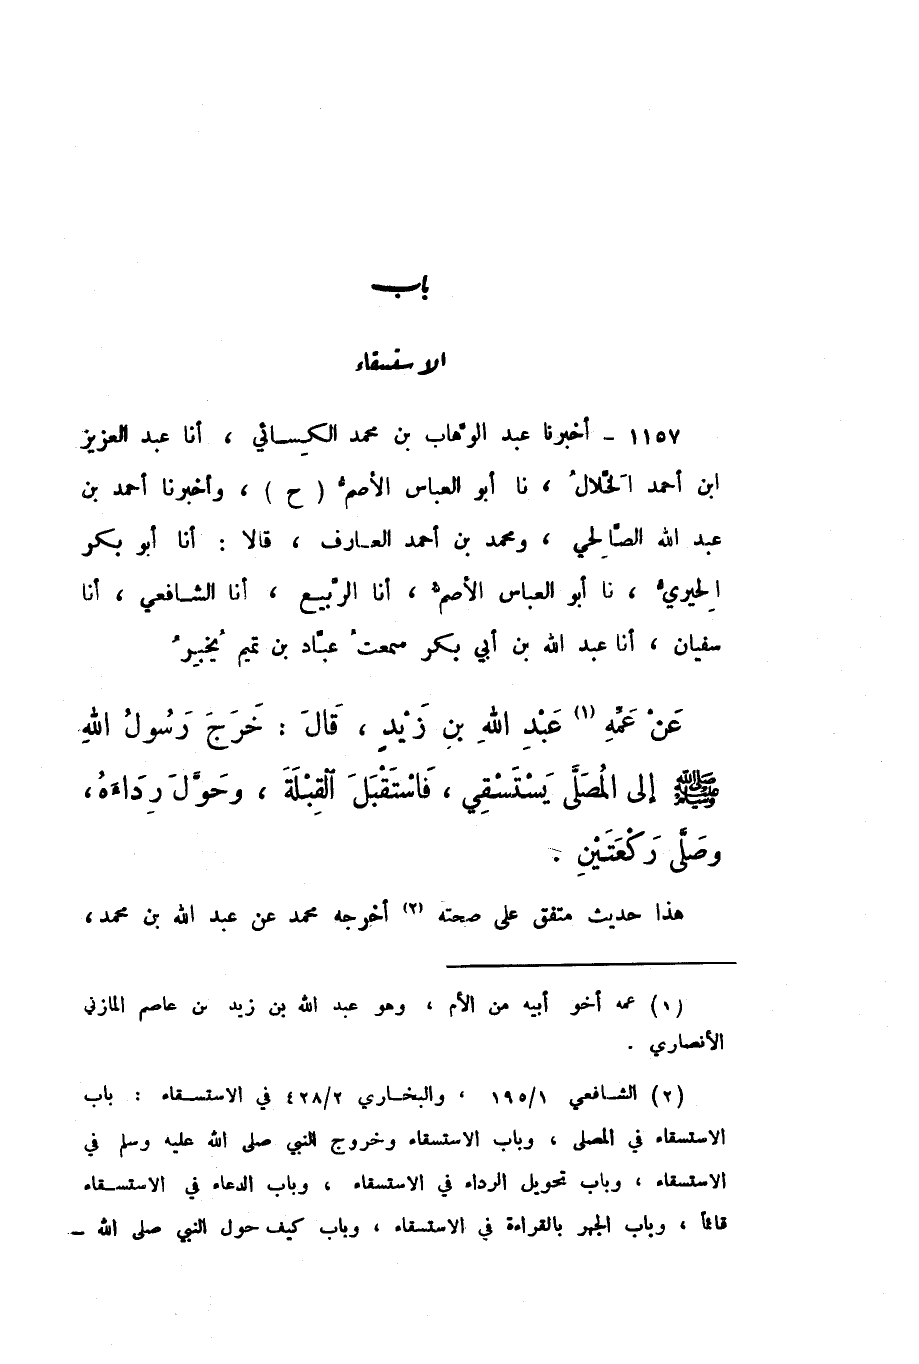 باب
الاستسقاء
١١٥٧ ـ أخبرنا عبد الوهّاب بن محمد الكِسائي ، أنا عبد العزيز
ابن أحمد الخَلّالُ ، نا أبو العباس الأصمُّ ( ح ) ، وأخبرنا أحمد بن
عبد الله الصّالِحي ، ومحمد بن أحمد العارف ، قالا : أنا أبو بكر
الحِيريُّ ، نا أبو العباس الأصمُّ ، أنا الرّبيع ، أنا الشافعي ، أنا
سفيان ، أنا عبد الله بن أبي بكر سمعتُ عبّاد بن تميم يُخْبِرُ
عَنْ عَمِّهِ (١) عَبْدِ اللهِ بنِ زَيْدٍ ، قَالَ : خَرَجَ رَسُولُ اللهِ
ﷺ إلى المُصَلَّى يَسْتَسْقِي ، فَاسْتَقْبَلَ ٱلقِبْلَةَ ، وحَوَّلَ رِدَاءَهُ ،
وصَلَّى رَكْعَتَيْنِ .
هذا حديث متفق على صحته (٢) أخرجه محمد عن عبد الله بن محمد ،
(١) عمه أخو أبيه من الأم ، وهو عبد الله بن زيد بن عاصم المازني
الأنصاري .
(٢) الشافعي ١٩٥/١ ، والبخاري ٤٢٨/٢ في الاستسقاء : باب
الاستسقاء في المصلى ، وباب الاستسقاء وخروج النبي صلى الله عليه وسلم في
الاستسقاء ، وباب تحويل الرداء في الاستسقاء ، وباب الدعاء في الاستسقاء
قائماً ، وباب الجهر بالقراءة في الاستسقاء ، وباب كيف حول النبي صلى الله ـ